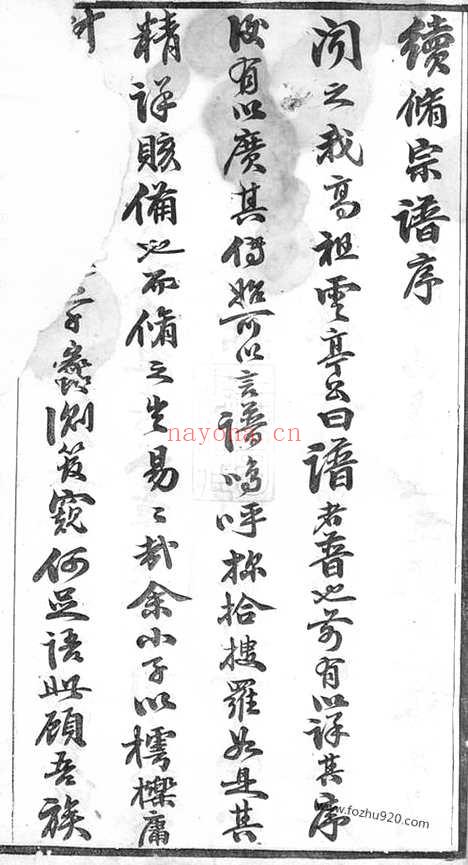 續脩宗譜序
聞之我高祖雲亭公曰譜者普也前有以詳其序
後有以廣其傳始可以言譜嗚呼採拾搜羅如是其
精詳賅備也而脩之豈易易哉余小子以樗櫟庸
材
蠡測管窺何足語此顧吾族
nayona.cn
www.fozhu920.com